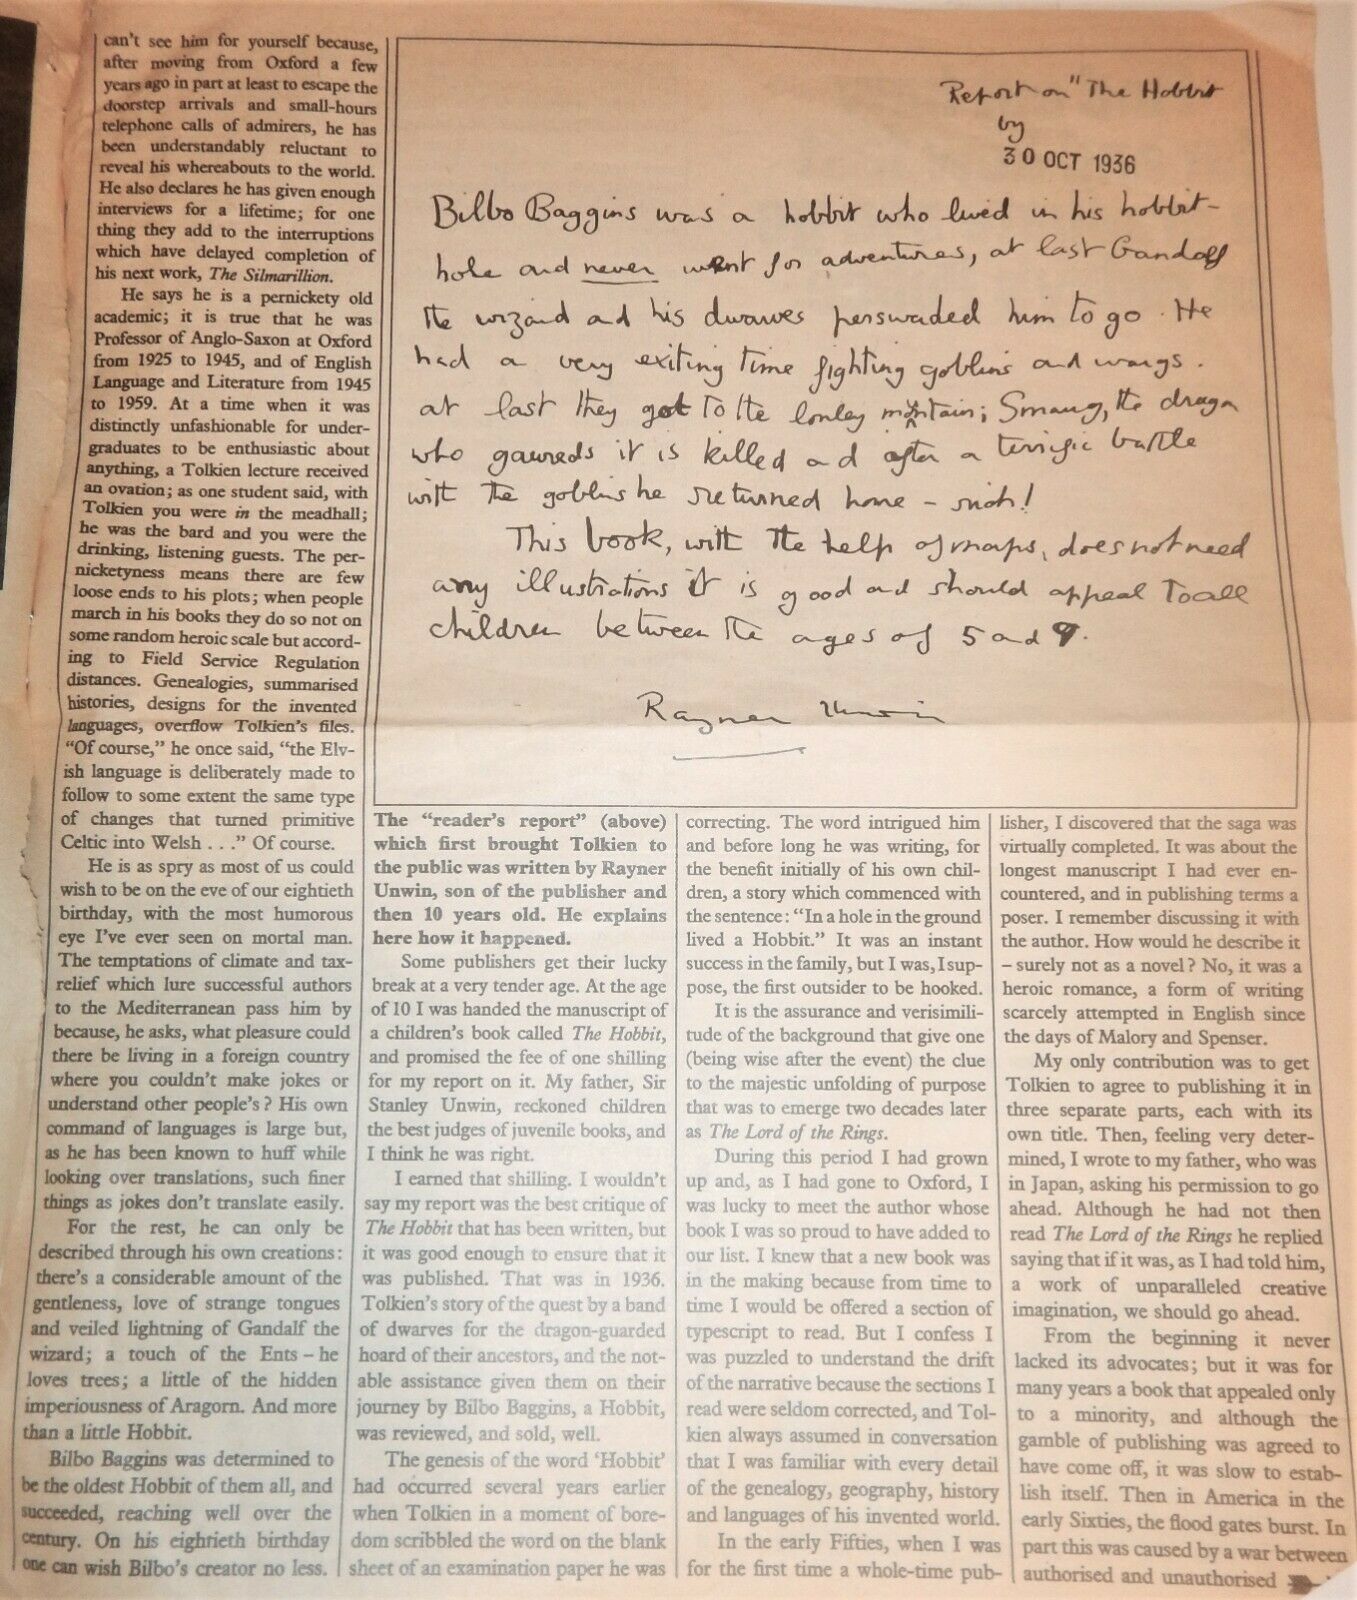 can't see him for yourself because,
after moving from Oxford a few
years ago in part at least to escape the
doorstep arrivals and small-hours
telephone calls of admirers, he has
been understandably reluctant to
reveal his whereabouts to the world.
He also declares he has given enough
interviews for a lifetime; for one
thing they add to the interruptions
which have delayed completion of
his next work, The Silmarillion.
He says he is a pernickety old
academic; it is true that he was
Professor of Anglo-Saxon at Oxford
from 1925 to 1945, and of English
Language and Literature from 1945
to 1959. At a time when it was
distinctly unfashionable for under-
graduates to be enthusiastic about
anything, a Tolkien lecture received
an ovation; as one student said, with
Tolkien you were in the meadhall;
he was the bard and you were the
drinking, listening guests. The per-
nicketyness means there are few
loose ends to his plots; when people
march in his books they do so not on
some random heroic scale but accord-
ing to Field Service Regulation
distances. Genealogies, summarised
histories, designs for the invented
languages, overflow Tolkien's files.
"Of course," he once said, "the Elv-
ish language is deliberately made to
follow to some extent the same type
of changes that turned primitive
Celtic into Welsh . . ." Of course.
He is as spry as most of us could
wish to be on the eve of our eightieth
birthday, with the most humorous
eye I've ever seen on mortal man.
The temptations of climate and tax-
relief which lure successful authors
to the Mediterranean pass him by
because, he asks, what pleasure could
there be living in a foreign country
where you couldn't make jokes or
understand other people's? His own
command of languages is large but,
as he has been known to huff while
looking over translations, such finer
things as jokes don't translate easily.
For the rest, he can only be
described through his own creations:
there's a considerable amount of the
gentleness, love of strange tongues
and veiled lightning of Gandalf the
wizard; a touch of the Ents – he
loves trees; a little of the hidden
imperiousness of Aragorn. And more
than a little Hobbit.
Bilbo Baggins was determined to
be the oldest Hobbit of them all, and
succeeded, reaching well over the
century. On his eightieth birthday
one can wish Bilbo's creator no less.
Report on "The Hobbit
by
30 OCT 1936
Bilbo Baggins was a hobbit who lived in his hobbit-
hole and never went for adventures, at last Gandalf
the wizard and his dwarves perswaded him to go. He
had a very exiting time fighting goblins and wargs.
at last they got to the lonley mountain; Smaug, the dragon
who gawreds it is killed and after a terrific battle
with the goblins he returned home – rich!
This book, with the help of maps, does not need
any illustrations it is good and should appeal to all
children between the ages of 5 and 9.
Rayner Unwin
The "reader's report" (above)
which first brought Tolkien to
the public was written by Rayner
Unwin, son of the publisher and
then 10 years old. He explains
here how it happened.
Some publishers get their lucky
break at a very tender age. At the age
of 10 I was handed the manuscript of
a children's book called The Hobbit,
and promised the fee of one shilling
for my report on it. My father, Sir
Stanley Unwin, reckoned children
the best judges of juvenile books, and
I think he was right.
I earned that shilling. I wouldn't
say my report was the best critique of
The Hobbit that has been written, but
it was good enough to ensure that it
was published. That was in 1936.
Tolkien's story of the quest by a band
of dwarves for the dragon-guarded
hoard of their ancestors, and the not-
able assistance given them on their
journey by Bilbo Baggins, a Hobbit,
was reviewed, and sold, well.
The genesis of the word 'Hobbit'
had occurred several years earlier
when Tolkien in a moment of bore-
dom scribbled the word on the blank
sheet of an examination paper he was
correcting. The word intrigued him
and before long he was writing, for
the benefit initially of his own chil-
dren, a story which commenced with
the sentence: "In a hole in the ground
lived a Hobbit." It was an instant
success in the family, but I was, I sup-
pose, the first outsider to be hooked.
It is the assurance and verisimili-
tude of the background that give one
(being wise after the event) the clue
to the majestic unfolding of purpose
that was to emerge two decades later
as The Lord of the Rings.
During this period I had grown
up and, as I had gone to Oxford, I
was lucky to meet the author whose
book I was so proud to have added to
our list. I knew that a new book was
in the making because from time to
time I would be offered a section of
typescript to read. But I confess I
was puzzled to understand the drift
of the narrative because the sections I
read were seldom corrected, and Tol-
kien always assumed in conversation
that I was familiar with every detail
of the genealogy, geography, history
and languages of his invented world.
In the early Fifties, when I was
for the first time a whole-time pub-
lisher, I discovered that the saga was
virtually completed. It was about the
longest manuscript I had ever en-
countered, and in publishing terms a
poser. I remember discussing it with
the author. How would he describe it
– surely not as a novel? No, it was a
heroic romance, a form of writing
scarcely attempted in English since
the days of Malory and Spenser.
My only contribution was to get
Tolkien to agree to publishing it in
three separate parts, each with its
own title. Then, feeling very deter-
mined, I wrote to my father, who was
in Japan, asking his permission to go
ahead. Although he had not then
read The Lord of the Rings he replied
saying that if it was, as I had told him,
a work of unparalleled creative
imagination, we should go ahead.
From the beginning it never
lacked its advocates; but it was for
many years a book that appealed only
to a minority, and although the
gamble of publishing was agreed to
have come off, it was slow to estab-
lish itself. Then in America in the
early Sixties, the flood gates burst. In
part this was caused by a war between
authorised and unauthorised